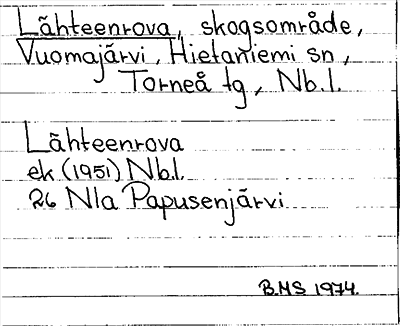 Lähteenrova, skogsområde,
Vuomajärvi, Hietaniemi sn,
Torneå tg, Nb.l.
Lähteenrova
ek (1951) Nb.l.
26 Nla Papusenjärvi
B.MS 1974.